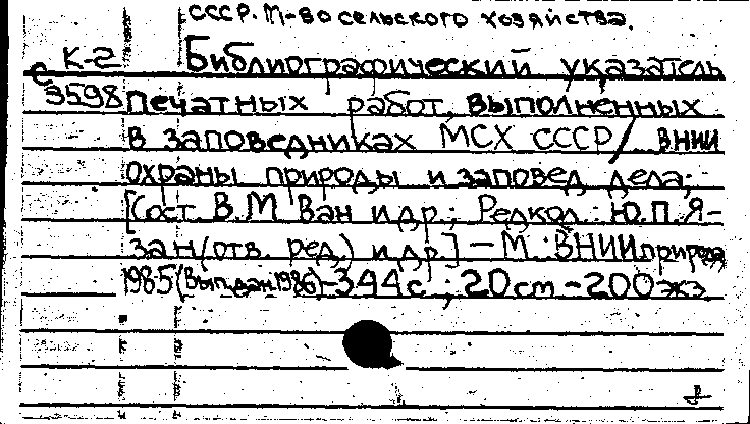 СССР. М-во сельского хозяйства.
К-2 Библиографический указатель
С 3598 печатных работ, выполненных
в заповедниках МСХ СССР / ВНИИ
охраны природы и заповед. дела;
[Сост. В.М. Ван и др.; Редкол.: Ю.П. Я-
зан (отв. ред.) и др.] - М.: ВНИИприрода,
1985 (Вып. дан. 1986) - 344 с.; 20 см. - 200 экз.